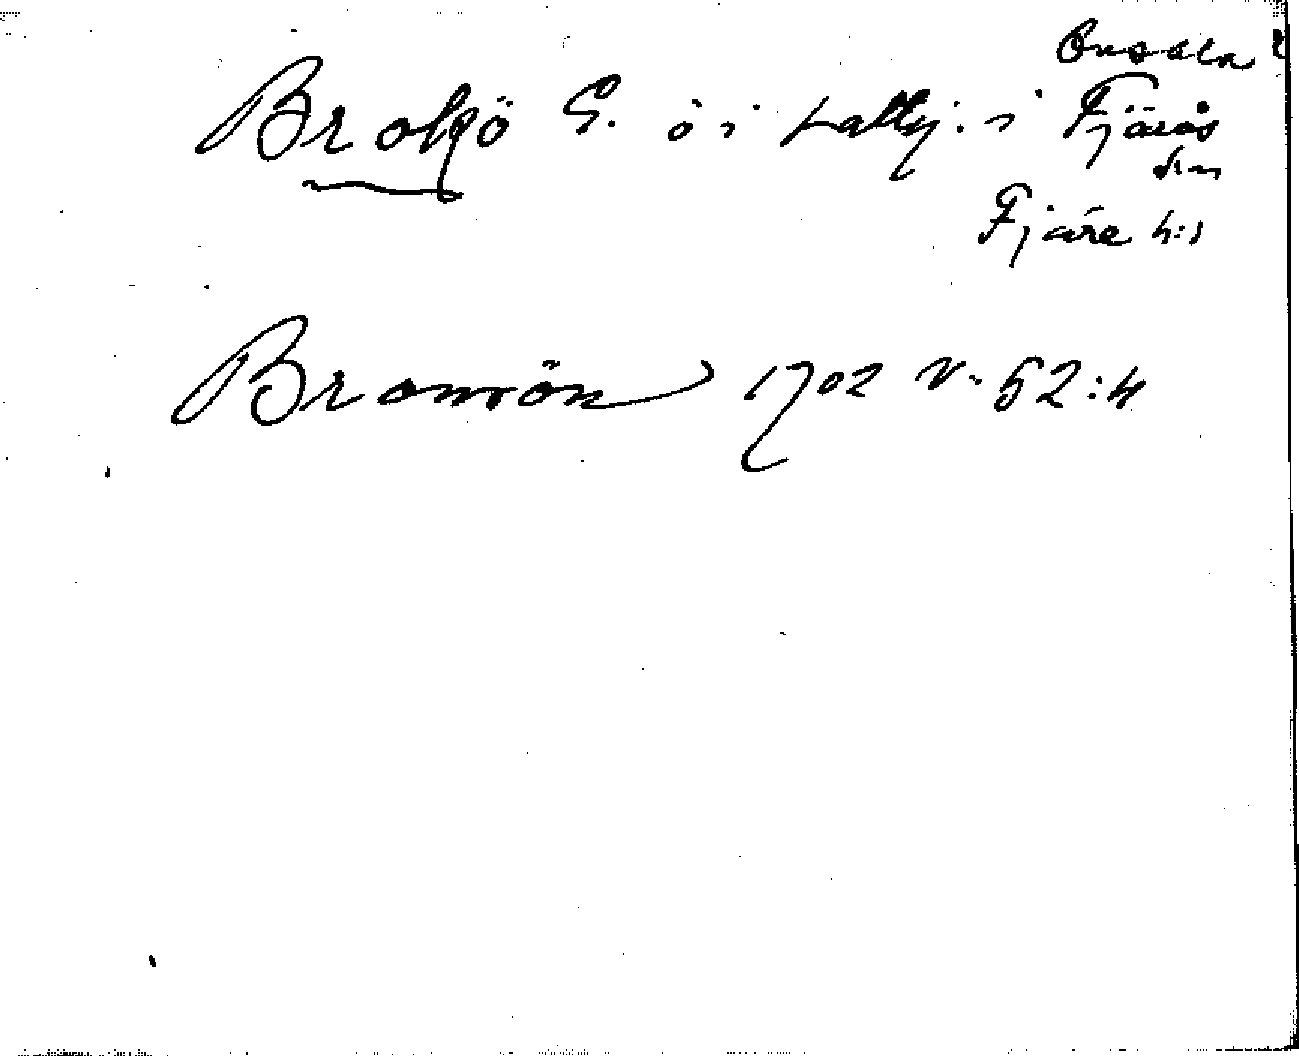 Onsala
Brokö S. ö i Latty. i Fjärås
sn
Fjäre h:d
Bramön 1702 V. 52:4